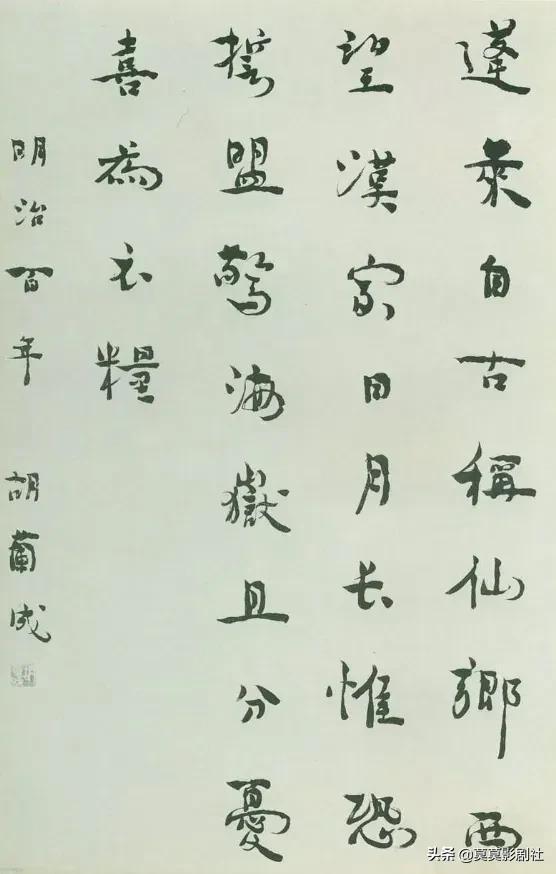 蓬萊自古稱仙鄉西
望漢家日月長惟恐
誓盟驚海嶽且分憂
喜為衣糧
明治百年 胡蘭成
头条 @莫莫影剧社